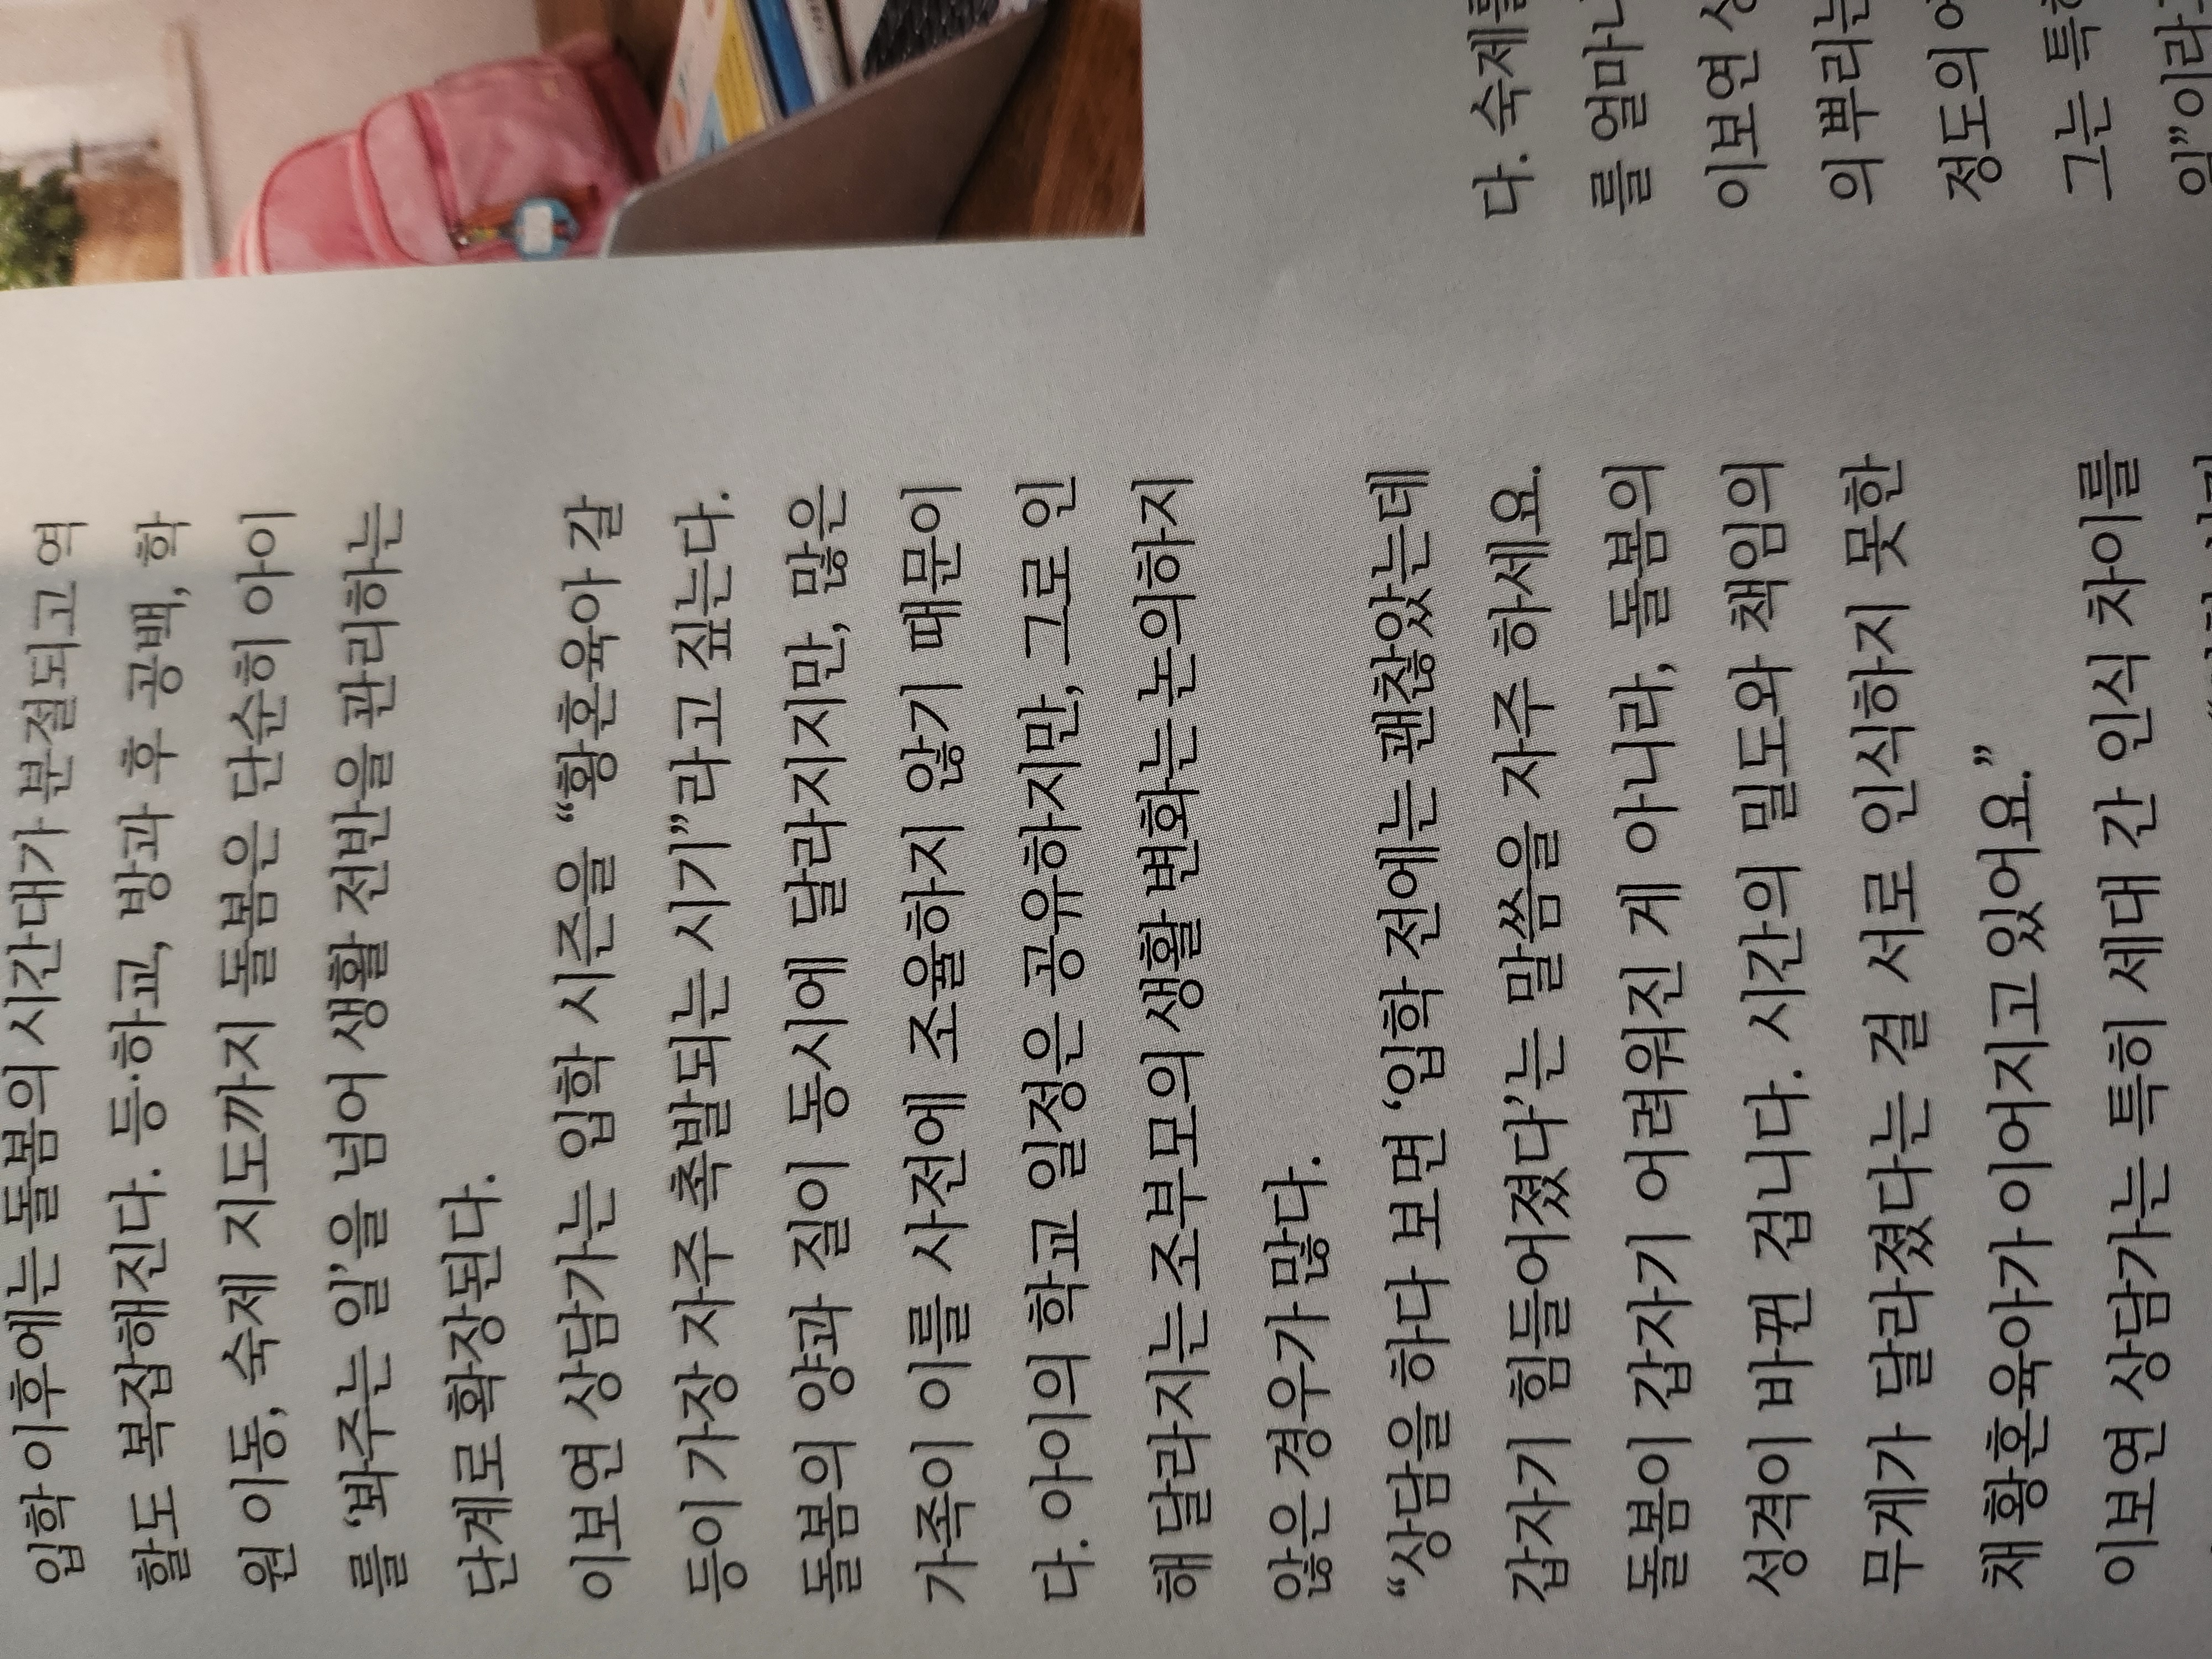 입학 이후에는 돌봄의 시간대가 분절되고 역
할도 복잡해진다. 등·하교, 방과 후 공백, 학
원 이동, 숙제 지도까지 돌봄은 단순히 아이
를 ‘봐주는 일’을 넘어 생활 전반을 관리하는
단계로 확장된다.
이보연 상담가는 입학 시즌을 “황혼육아 갈
등이 가장 자주 촉발되는 시기”라고 짚는다.
돌봄의 양과 질이 동시에 달라지지만, 많은
가족이 이를 사전에 조율하지 않기 때문이
다. 아이의 학교 일정은 공유하지만, 그로 인
해 달라지는 조부모의 생활 변화는 논의하지
않은 경우가 많다.
“상담을 하다 보면 ‘입학 전에는 괜찮았는데
갑자기 힘들어졌다’는 말씀을 자주 하세요.
돌봄이 갑자기 어려워진 게 아니라, 돌봄의
성격이 바뀐 겁니다. 시간의 밀도와 책임의
무게가 달라졌다는 걸 서로 인식하지 못한
채 황혼육아가 이어지고 있어요.”
이보연 상담가는 특히 세대 간 인식 차이를
다. 숙제를
를 얼마나
이보연 상
의 뿌리는
정도의
그는 특히
일”이라고